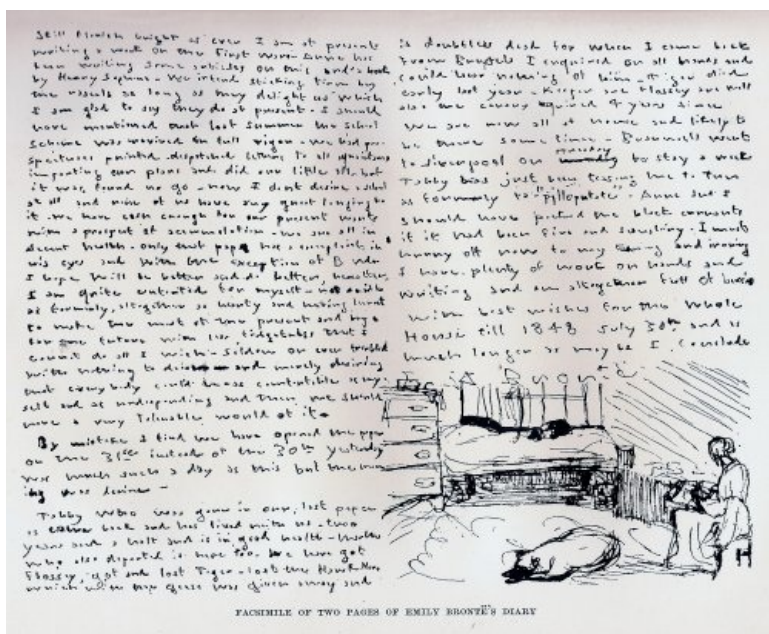 Still flourish bright as ever I am at present
writing a work on the First Wars - Anne has
been writing some articles on this and a book
by Henry Sophona - We intend sticking firm by
the rascals as long as they delight us which
I am glad to say they do at present - I should
have mentioned that last summer the school
scheme was revived in full vigor - We had pro-
spectuses printed, despatched letters to all aquaintances
imparting our plans and did our little all - but
it was found no go - now I dont desire a school
at all and none of us have any great longing for
it. We have cash enough for our present wants
with a prospect of accumulation - we are all in
decent health - only that papa has a complaint in
his eyes and with the exception of B who
I hope will be better and do better, hereafter.
I am quite contented for myself - not as idle
as formerly, altogether as hearty and having learnt
to make the most of the present and hope
for the future with less fidgetiness that I
cannot do all I wish - seldom or ever troubled
with nothing to do and merely desiring
that every body could be as comfortable as my
self and as undesponding and then we should
have a very tolerable world of it -
By mistake I find we have opened the paper
on the 31st instead of the 30th yesterday
was much such a day as this but the morn
ing was divine -
Tabby who was gone in our last paper
is come back and has lived with us - two
years and a half and is in good health - Martha
who also departed is here too. We have got
Flossey, got and lost Tiger - lost the Hawk. Nero
which with the geese was given away and
is doubtless dead for when I came back
from Brussels I enquired on all hands and
could hear nothing of him - Tiger died
early last year - Keeper and Flossey are well
also the canary acquired 4 years since
We are now all at home and likely to
be there some time - Branwell went
to Liverpool on Tuesday to stay a week
Tabby has just been teasing me to turn
as formerly to - "pilloputate". Anne and I
should have picked the black currants
if it had been fine and sunshiny. I must
hurry off now to my turning and ironing
I have plenty of work on hands and
writing and am altogether full of business
with best wishes for the whole
House till 1848 July 30th and as
much longer as may be I conclude
E J Brontë
FACSIMILE OF TWO PAGES OF EMILY BRONTË'S DIARY